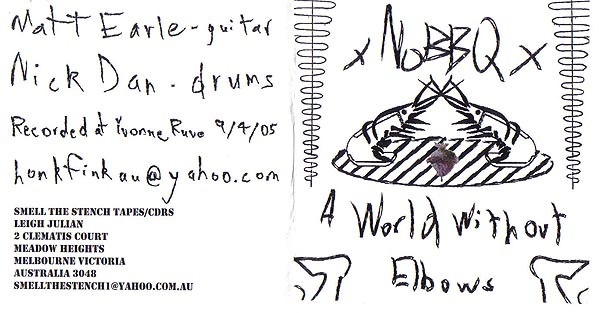 Matt Earle - guitar
Nick Dan - drums
Recorded at Yvonne Ruve 9/4/05
honkfinkau@yahoo.com
SMELL THE STENCH TAPES/CDRS
LEIGH JULIAN
2 CLEMATIS COURT
MEADOW HEIGHTS
MELBOURNE VICTORIA
AUSTRALIA 3048
SMELLTHESTENCH1@YAHOO.COM.AU
x NoBBQ x
A World Without
Elbows